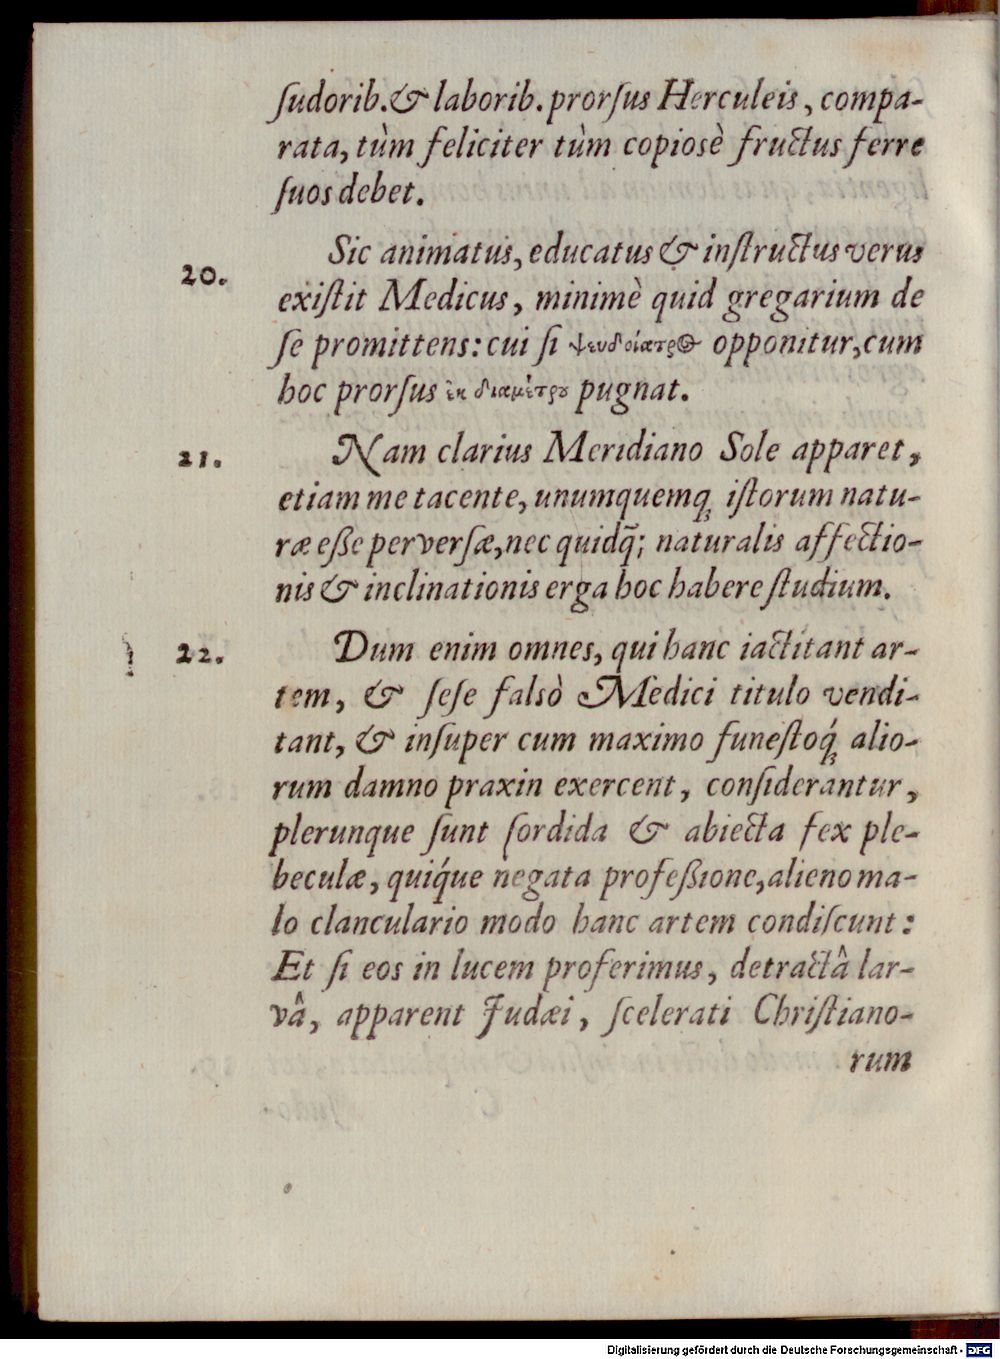 ſudorib. & laborib. prorſus Herculeis, compa-
rata, tùm feliciter tùm copiosè fructus ferre
ſuos debet.
20. Sic animatus, educatus & inſtructus verus
exiſtit Medicus, minimè quid gregarium de
ſe promittens: cui ſi ψευδοίατρος opponitur, cum
hoc prorſus ἐκ διαμέτρου pugnat.
21. Nam clarius Meridiano Sole apparet,
etiam me tacente, unumquemq́ꝫ iſtorum natu-
ræ eſſe perverſæ, nec quidq̃; naturalis affectio-
nis & inclinationis erga hoc habere ſtudium.
22. Dum enim omnes, qui hanc iactitant ar-
tem, & ſeſe falsò Medici titulo vendi-
tant, & inſuper cum maximo funeſtoq́ꝫ alio-
rum damno praxin exercent, conſiderantur,
plerunque ſunt ſordida & abiecta fex ple-
beculæ, quiq́ue negata profeßione, alieno ma-
lo clanculario modo hanc artem condiſcunt:
Et ſi eos in lucem proferimus, detractâ lar-
vâ, apparent Judæi, ſcelerati Chriſtiano-
rum
Digitalisierung gefördert durch die Deutsche Forschungsgemeinschaft - DFG